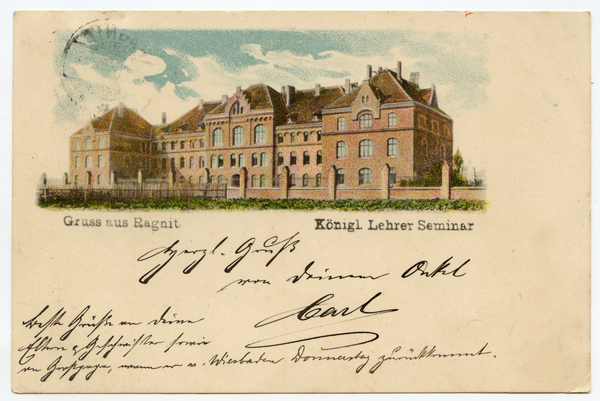 Gruss aus Ragnit.
Königl. Lehrer Seminar
Herzl. Gruß
von deinem Onkel
Carl
Beste Grüße an deine
Eltern & Geschwister sowie
an Großpapa, wenn er v. Wiesbaden Donnerstag zurückkommt.